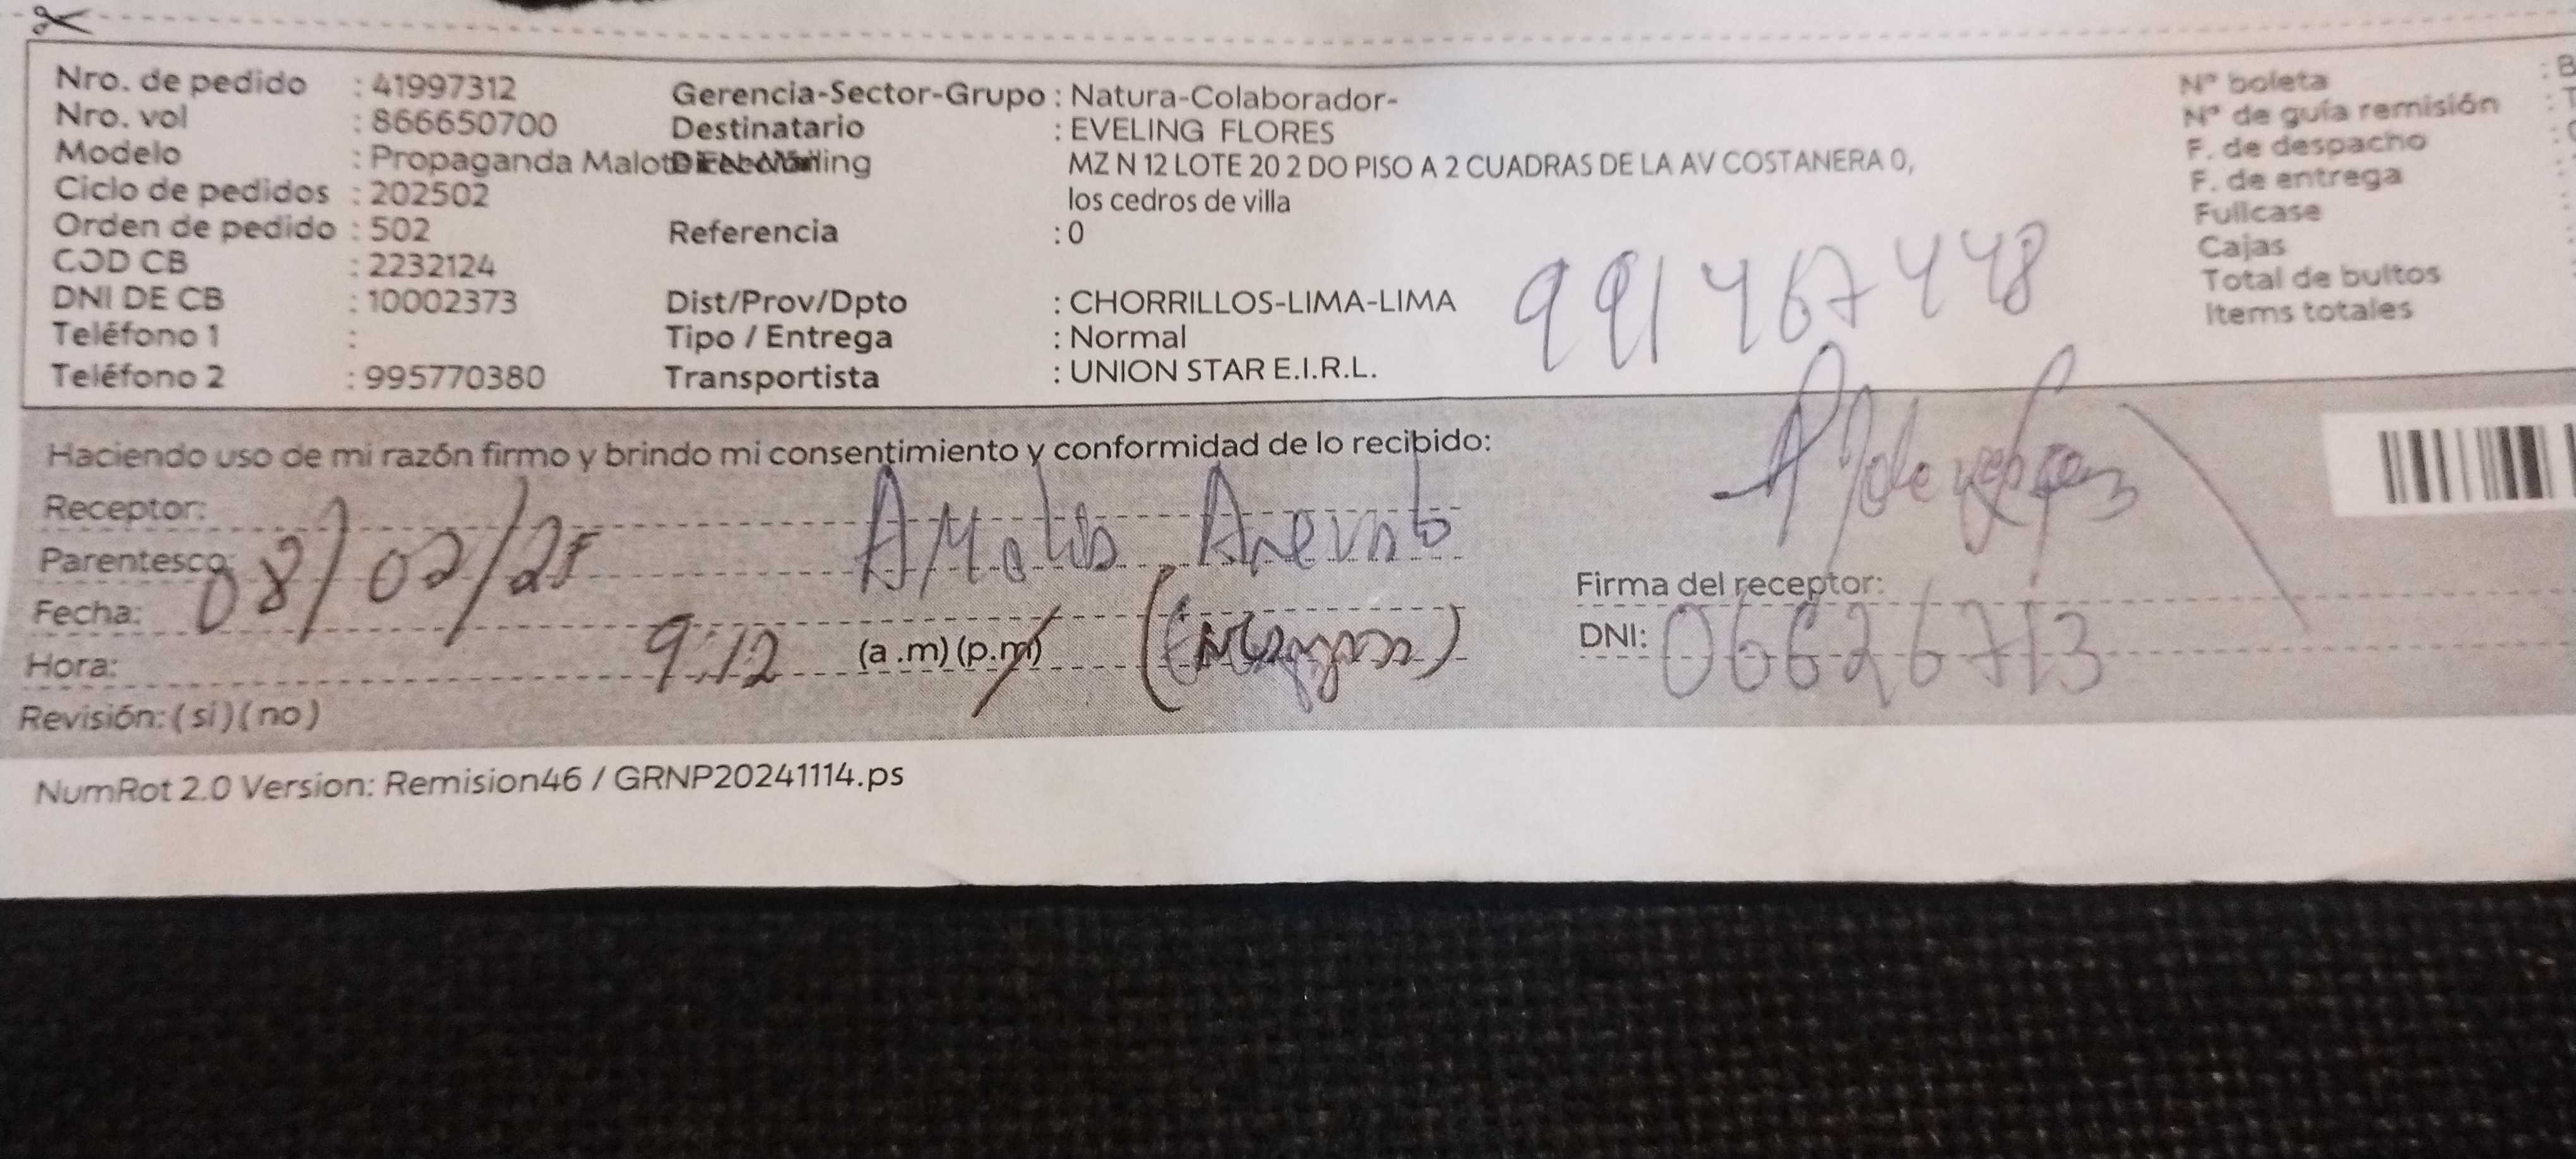 Nro. de pedido : 41997312
Nro. vol : 866650700
Modelo : Propaganda
Ciclo de pedidos : 202502
Orden de pedido : 502
COD CB : 2232124
DNI DE CB : 10002373
Teléfono 1 :
Teléfono 2 : 995770380
Gerencia-Sector-Grupo : Natura-Colaborador-
Destinatario : EVELING FLORES
MZ N 12 LOTE 20 2 DO PISO A 2 CUADRAS DE LA AV COSTANERA 0,
los cedros de villa
Referencia : 0
Dist/Prov/Dpto : CHORRILLOS-LIMA-LIMA
Tipo / Entrega : Normal
Transportista : UNION STAR E.I.R.L.
991467448
N° boleta : B
N° de guía remisión : T
F. de despacho
F. de entrega
Fullcase
Cajas
Total de bultos
Items totales
Haciendo uso de mi razón firmo y brindo mi consentimiento y conformidad de lo recibido:
Receptor:
Parentesco:
Fecha: 08/02/25
Hora: 9:12 (a.m) (p.m)
Revisión: (si) (no)
Firma del receptor:
DNI: 06626713
NumRot 2.0 Version: Remision46 / GRNP20241114.ps